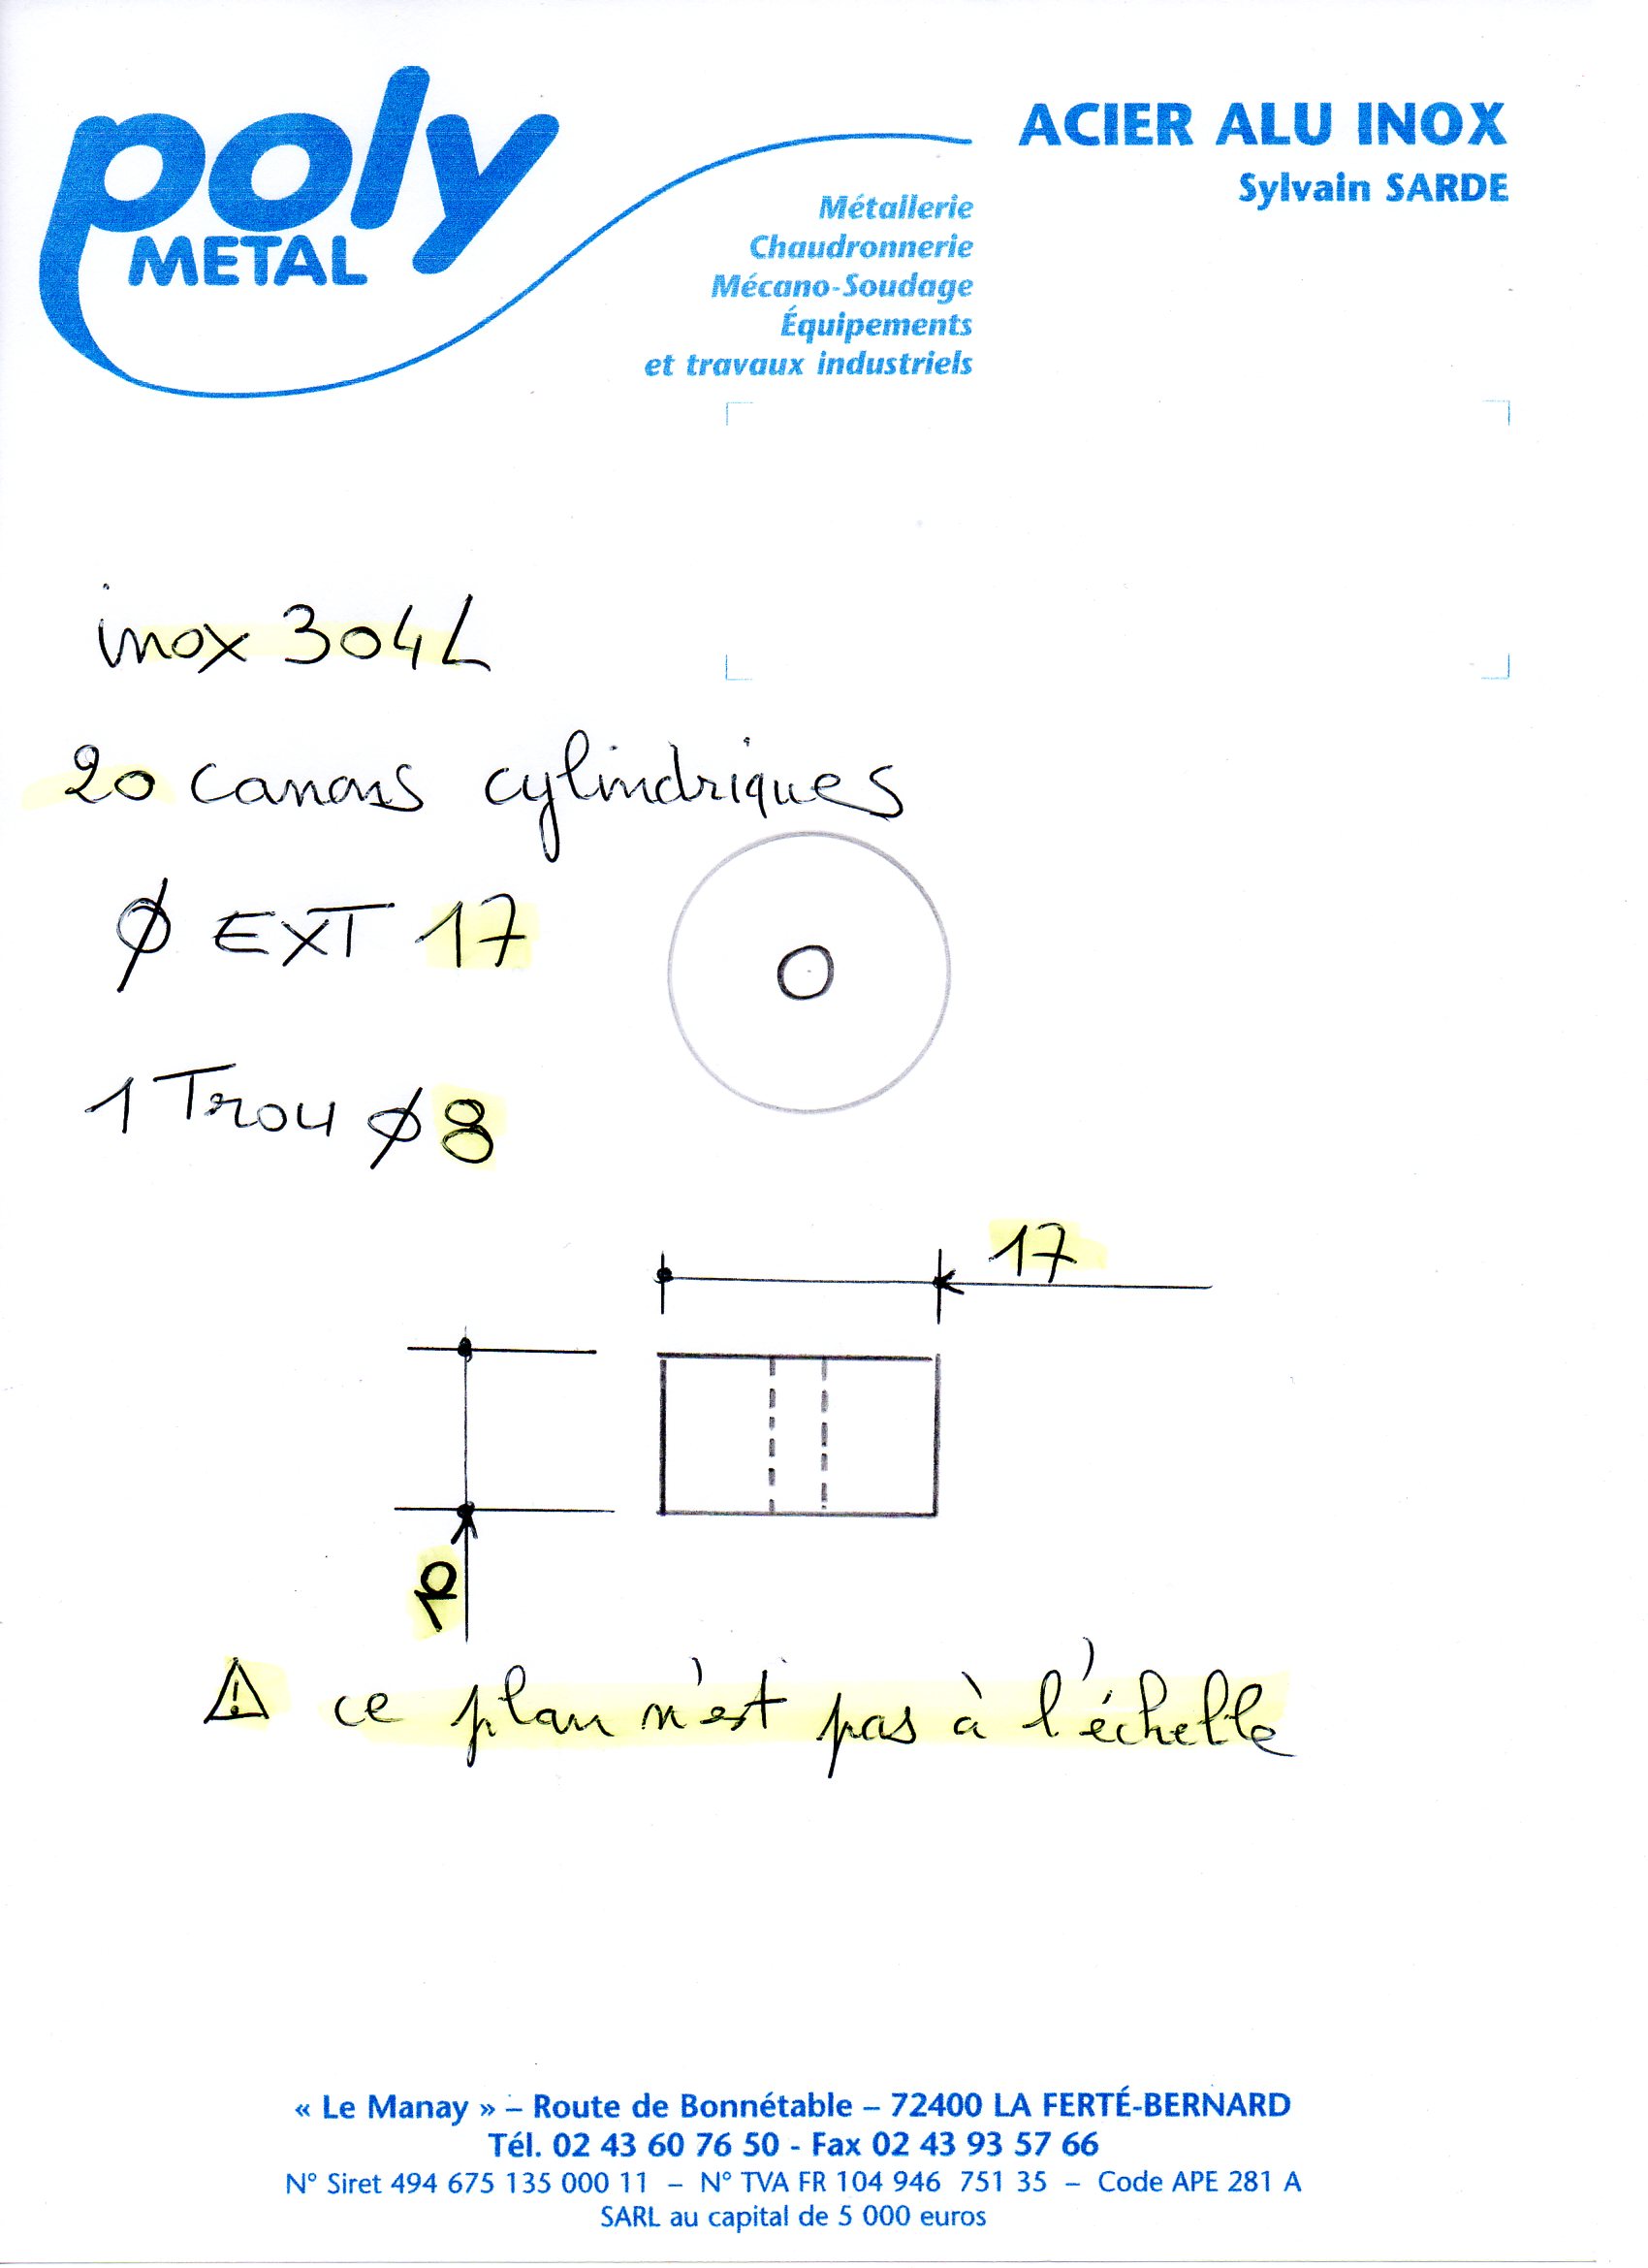 poly
METAL
ACIER ALU INOX
Sylvain SARDE
Métallerie
Chaudronnerie
Mécano-Soudage
Équipements
et travaux industriels
inox 304L
20 canons cylindriques
Ø EXT 17
1 Trou Ø 8
17
⚠ ce plan n'est pas à l'échelle
« Le Manay » – Route de Bonnétable – 72400 LA FERTÉ-BERNARD
Tél. 02 43 60 76 50 - Fax 02 43 93 57 66
N° Siret 494 675 135 000 11 – N° TVA FR 104 946 751 35 – Code APE 281 A
SARL au capital de 5 000 euros